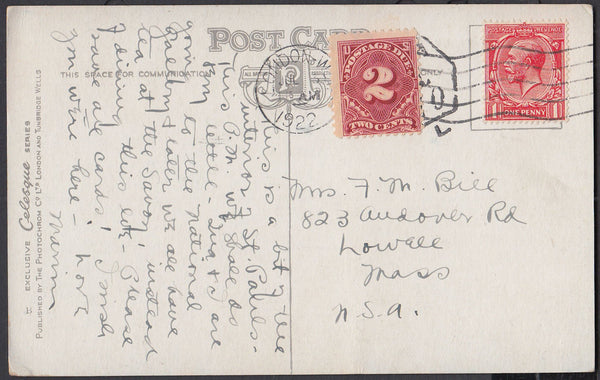 POST CARD
THIS SPACE FOR COMMUNICATION
ONLY
LONDON.W
AM
1922
POSTAGE DUE
2
TWO CENTS
POSTAGE REVENUE
1 ONE PENNY 1
This is a bit of the
interior of St. Pauls-
This P.M. we shall do
little - Sue & I are
going to the National
Gallery & later we all have
tea at the Savoy, instead
of dining this eve - Please
save all cards! I wish
you were here - Love
Mrs. F. M. Bill
823 Andover Rd
Lowell
Mass
U.S.A.
EXCLUSIVE Celesque SERIES
PUBLISHED BY THE PHOTOCHROM CO LTD LONDON AND TUNBRIDGE WELLS